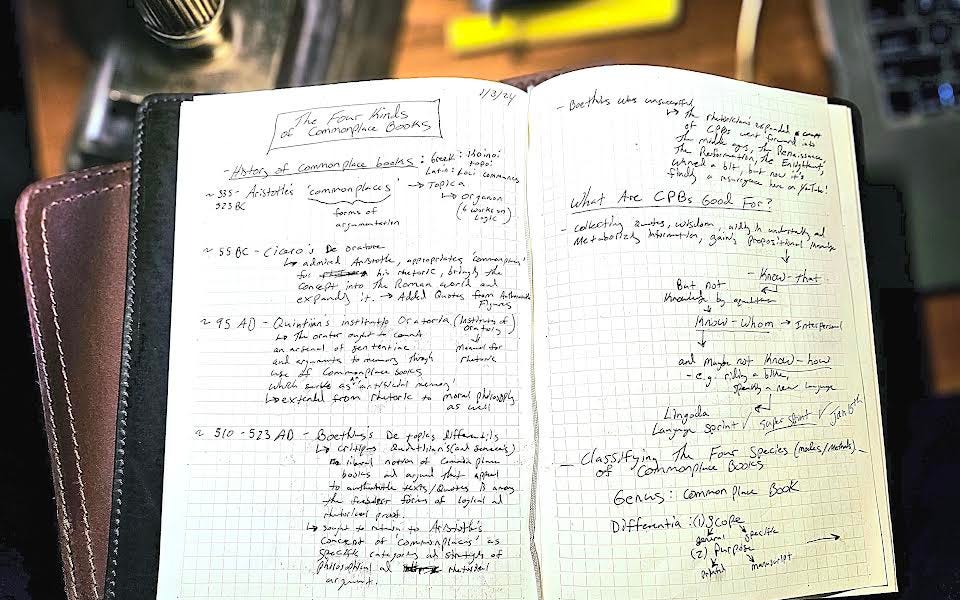 1/3/24
The Four Kinds
of Commonplace Books
- History of commonplace books : Greek: Koinoi
topoi
Latin: Loci communes
~ 335-
323 BC
Aristotle's 'commonplaces' → Topica
↳ Organon
(6 works on
Logic)
forms of
argumentation
~ 55 BC - Cicero's De oratore
↳ admired Aristotle, appropriates 'commonplaces'
for his rhetoric, brings the
concept into the Roman world and
expands it. → Added Quotes from Authoritative
Figures
~ 95 AD - Quintilian's institutio Oratoria (Institutes of
Oratory)
↳ The orator ought to commit
an arsenal of sententiae
and arguments to memory through
use of Commonplace books
which serve as 'artificial memory'
↓
Manual for
rhetoric
↳ extended from rhetoric to moral philosophy
as well
~ 510-523 AD - Boethius's De topics differentiis
↳ critiques Quintilian's (and Seneca's)
liberal notion of Commonplace
books and argued that appeal
to authoritative texts/Quotes is among
the forms of logical and
rhetorical proof.
↳ sought to return to Aristotle's
concept of 'commonplaces' as
specific categories and strategies of
philosophical and rhetorical
argument.
- Boethius was unsuccessful
↳ The rhetoricians expanded concept
of CPBs went forward into
the middle ages, the Renaissance,
the Reformation, the Enlightenment,
waned a bit, but now it's
finding a resurgence here on YouTube!
What Are CPBs Good For?
- collecting quotes, wisdom, understanding and
Metabolizing information, gaining propositional knowledge
↓
- Know-that
But not
Knowledge by
Know-Whom → Interpersonal
↓
and Maybe not Know-how
- e.g. riding a bike,
speaking a new language
Lingoda
Language sprint ✓ Super Sprint ✓ Jan 15th
- Classifying The Four Species (modes/Methods)
of Commonplace Books
Genus: Commonplace Book
Differentia: (1) Scope
general specific
(2) Purpose
manuscript
→